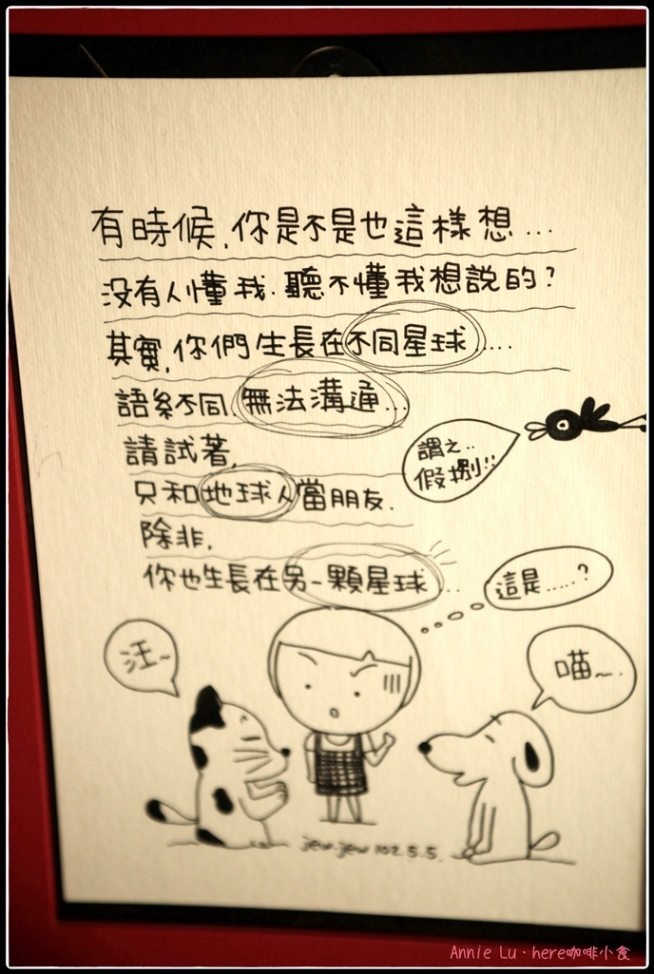 有時候,你是不是也這樣想...
沒有人懂我.聽不懂我想說的?
其實,你們生長在不同星球....
語系不同,無法溝通...
請試著,
只和地球人當朋友.
除非,
你也生長在另一顆星球...
謂之..
假掰!!
這是.....?
汪~
喵~..
jew.jew 102.5.5.
Annie Lu · here咖啡小食